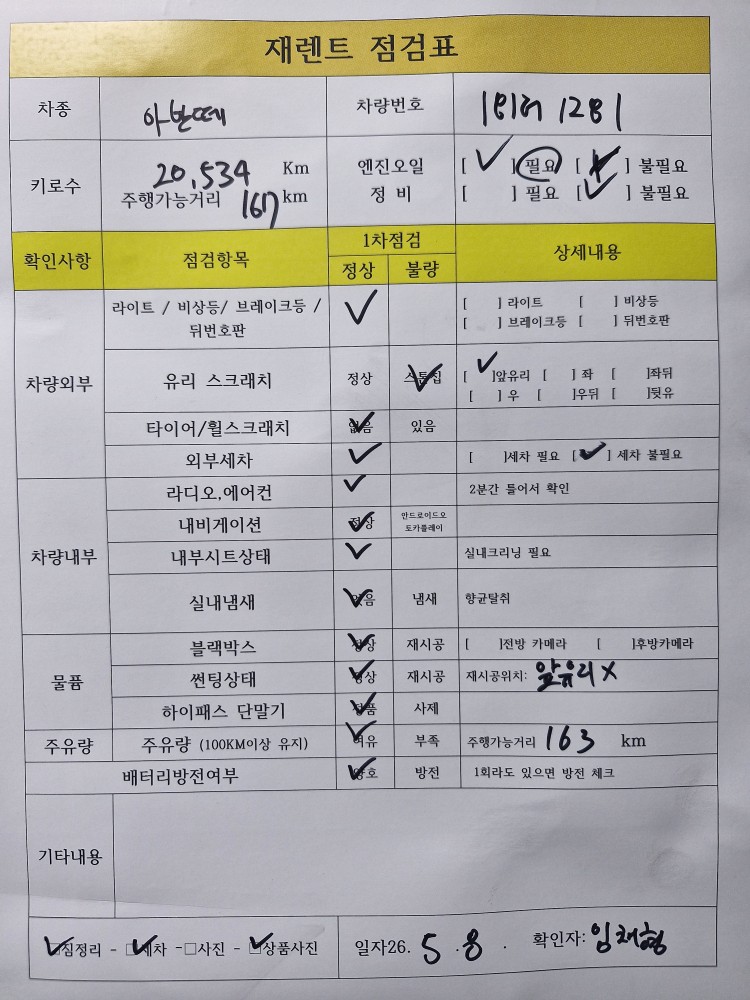 재렌트 점검표
차종 아반떼 차량번호 181허 1281
키로수 20,534 Km
주행가능거리 167 km
엔진오일 [ ✓ ] 필요 [ ] 불필요
정 비 [ ] 필요 [ ✓ ] 불필요
확인사항 점검항목 1차점검 상세내용
정상 불량
차량외부
라이트 / 비상등/ 브레이크등 / 뒤번호판 ✓
[ ] 라이트 [ ] 비상등
[ ] 브레이크등 [ ] 뒤번호판
유리 스크래치 정상 스톤칩 ✓
[ ✓ ]앞유리 [ ] 좌 [ ]좌뒤
[ ] 우 [ ]우뒤 [ ]뒷유
타이어/휠스크래치 없음 ✓ 있음
외부세차 ✓ [ ]세차 필요 [ ✓ ] 세차 불필요
차량내부
라디오,에어컨 ✓ 2분간 틀어서 확인
내비게이션 정상 ✓ 안드로이드오토카플레이
내부시트상태 ✓ 실내크리닝 필요
실내냄새 없음 ✓ 냄새 향균탈취
물품
블랙박스 정상 ✓ 재시공 [ ]전방 카메라 [ ]후방카메라
썬팅상태 정상 ✓ 재시공 재시공위치: 앞유리 X
하이패스 단말기 정품 ✓ 사제
주유량 주유량 (100KM이상 유지) 여유 ✓ 부족 주행가능거리 163 km
배터리방전여부 양호 ✓ 방전 1회라도 있으면 방전 체크
기타내용
☑짐정리 - ☑세차 - □사진 - ☑상품사진 일자26. 5 . 8 . 확인자: 임채형